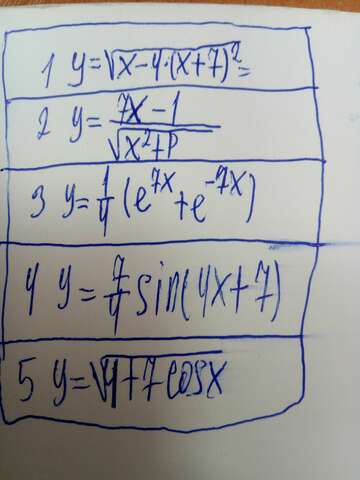 1 y=√x-4·(x+7)²=
2 y= 7x-1 / √x²+p
3 y= 1/4 (e^7x+e^-7x)
4 y= 7/4 sin(4x+7)
5 y=√4+7cosx